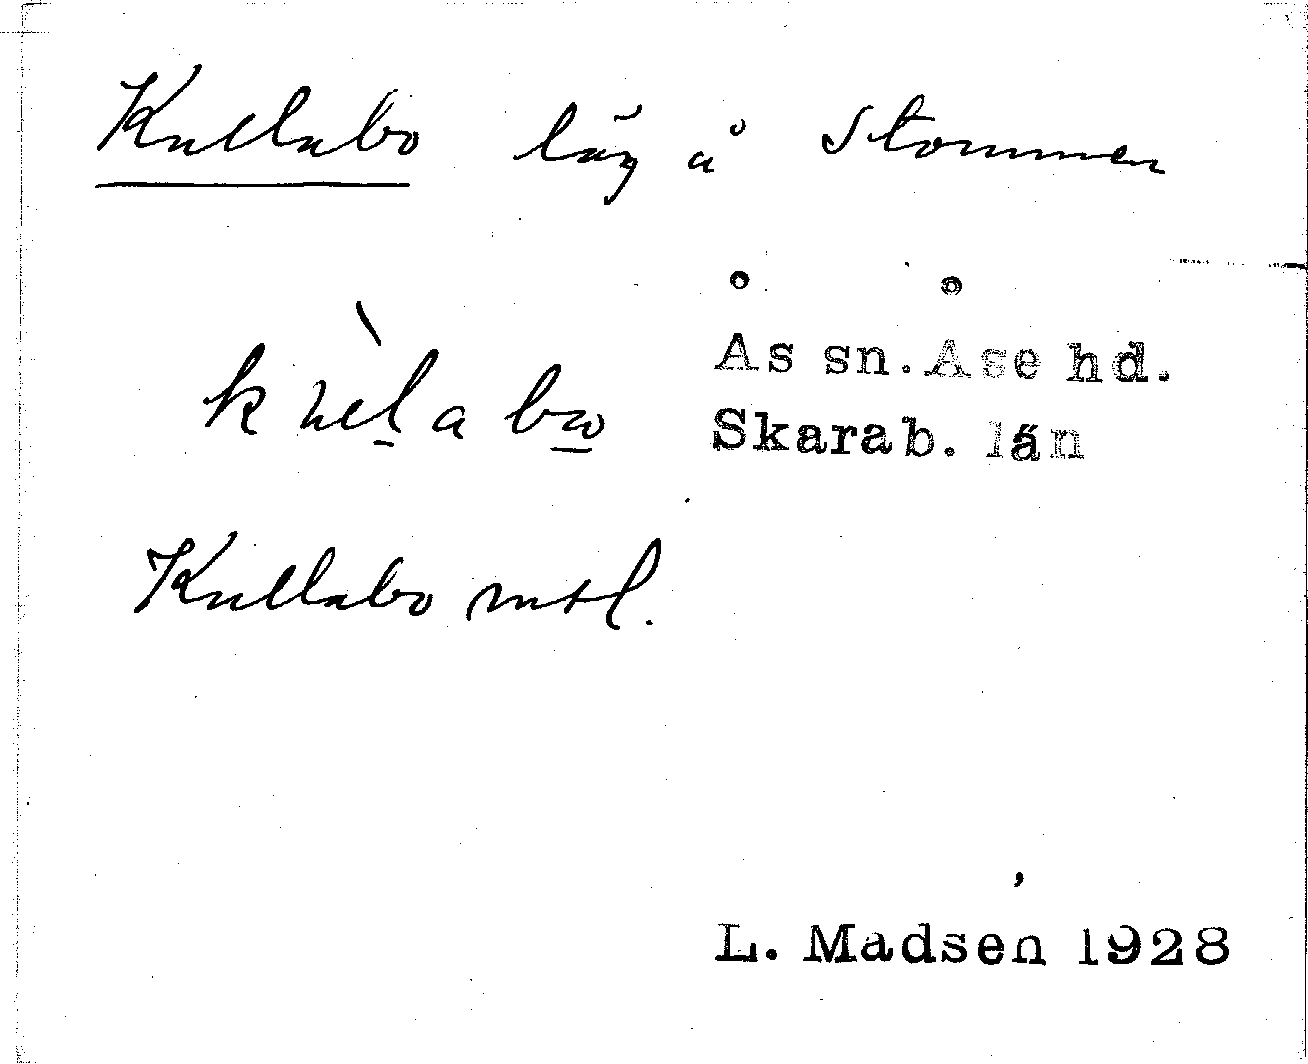 Kullabo låg å Stommen
Ås sn. Åse hd.
Skarab. län
Kullabo mtl.
L. Madsen 1928